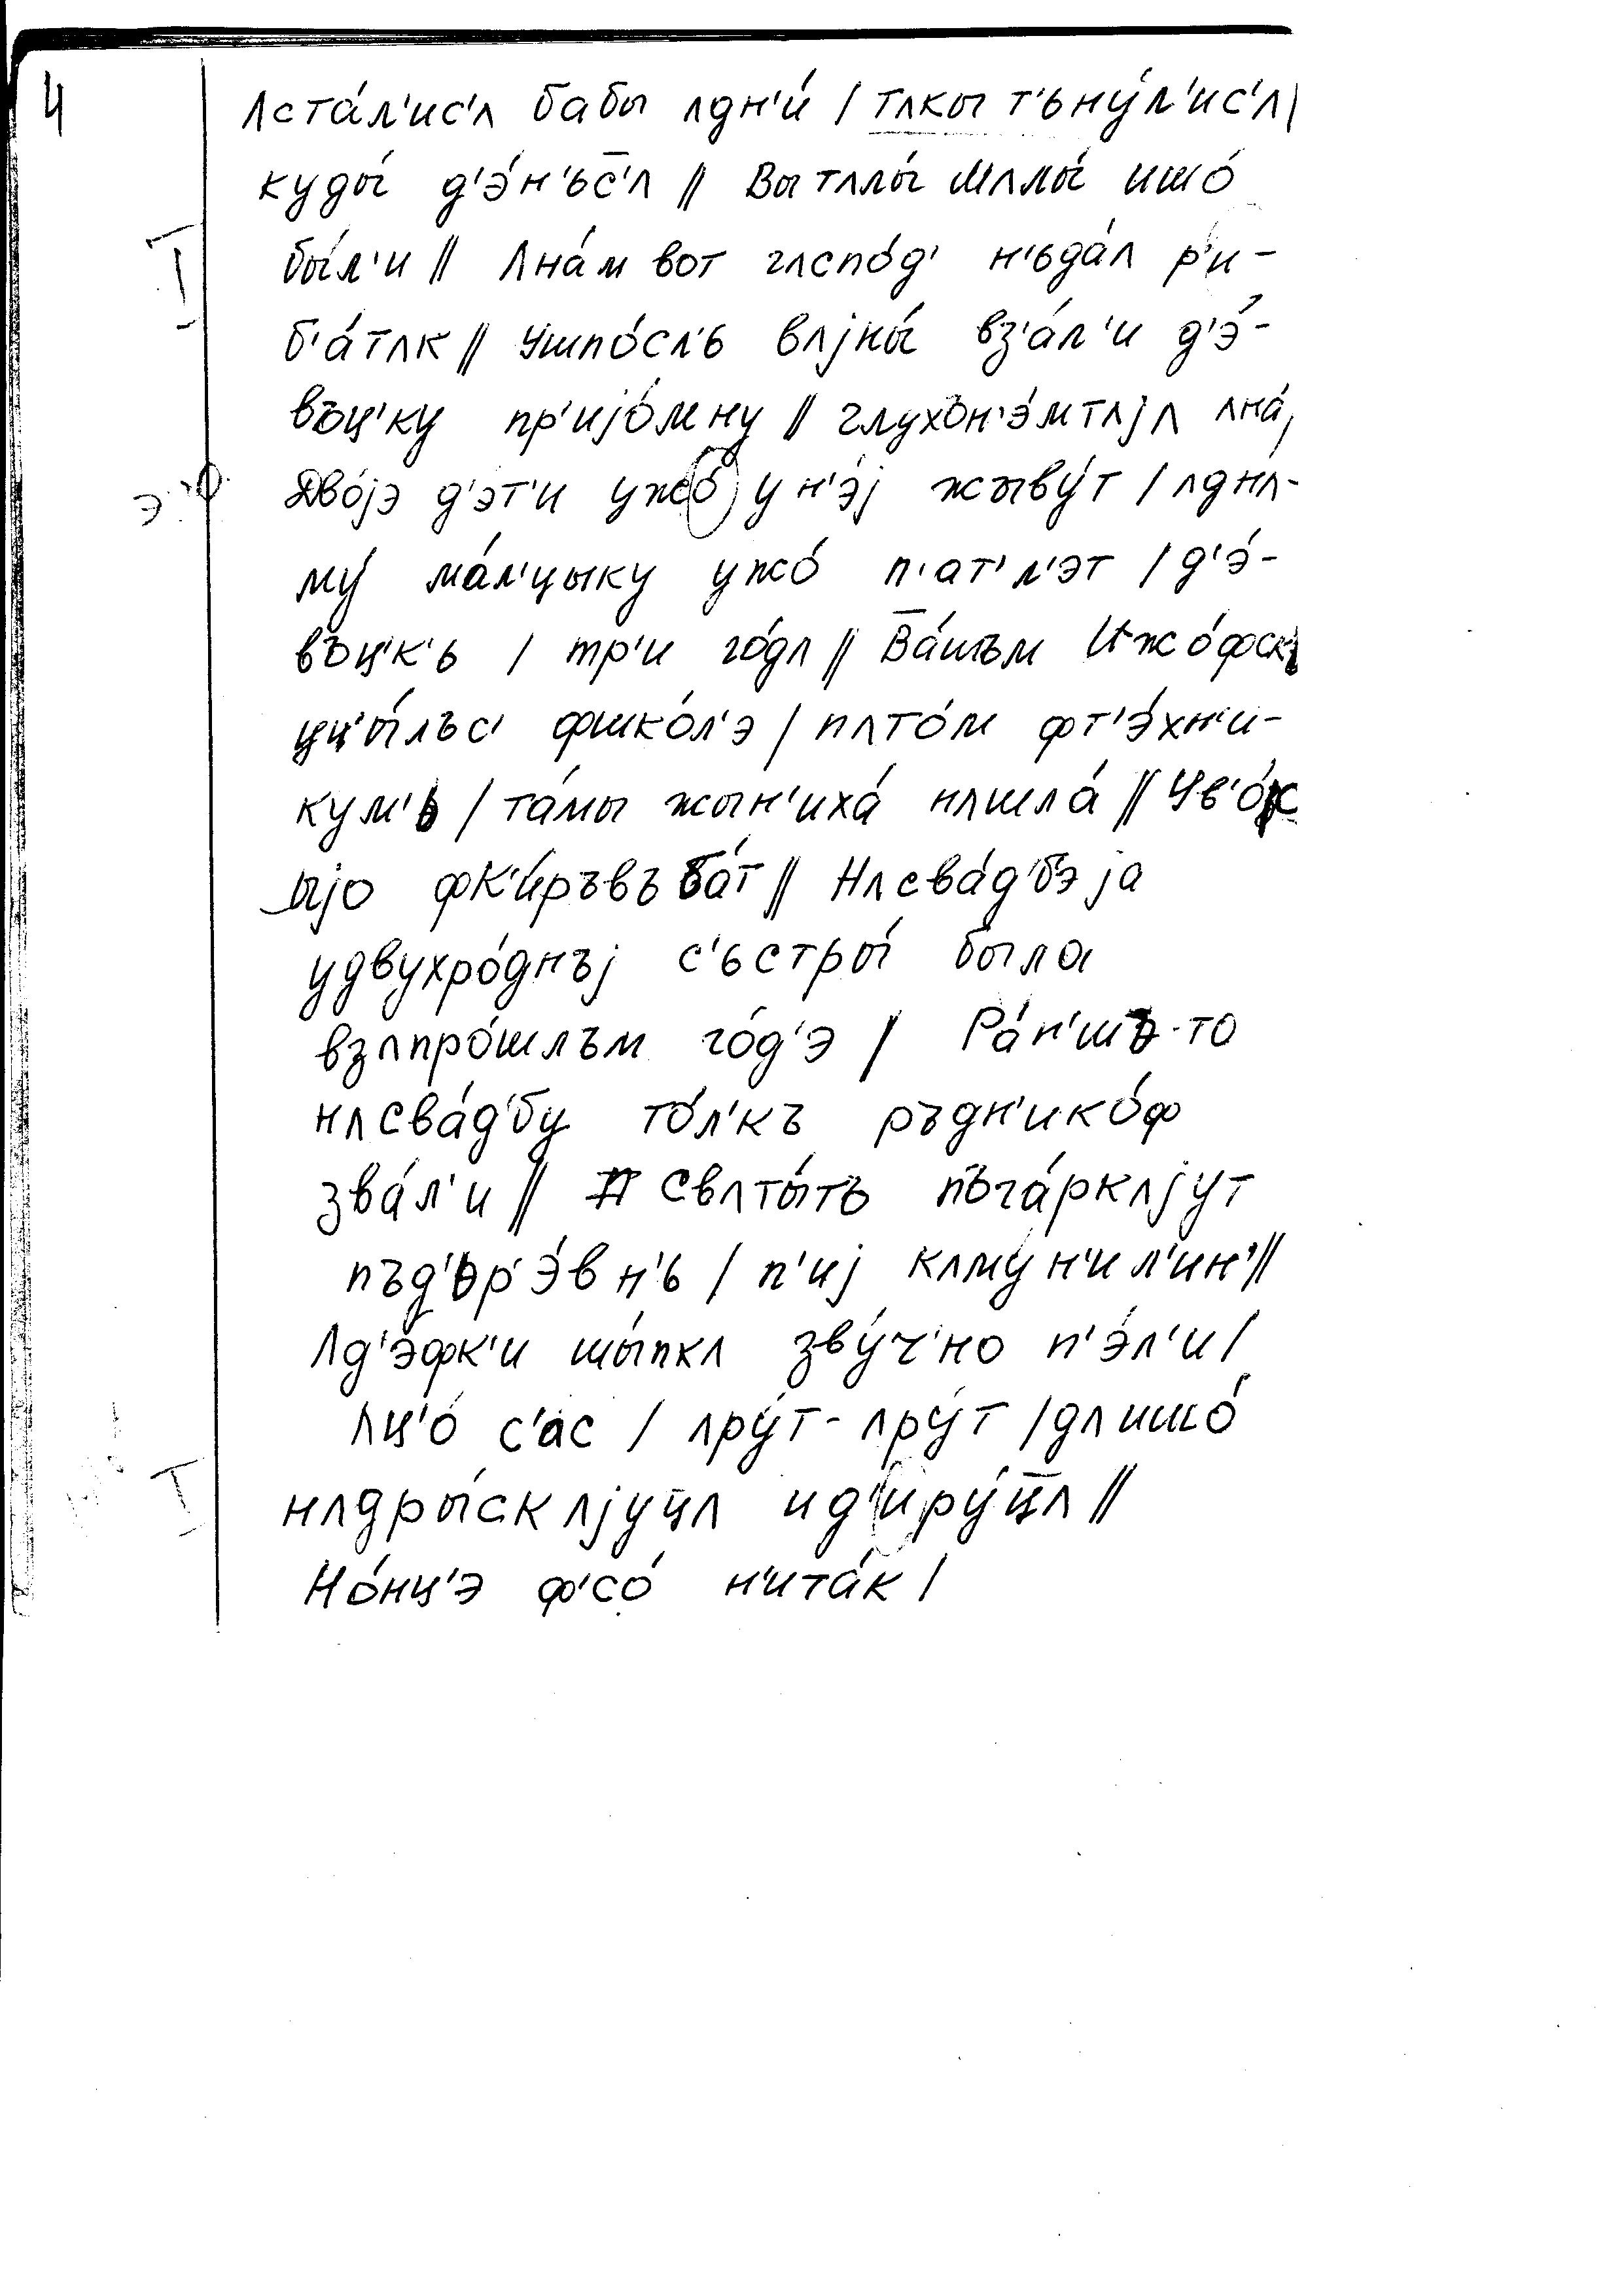 4
Λста́л'ис'Λ бабы Λдн'и́ / тΛкы т'ьну́л'ис'Λ/
куды́ д'э́н'ьс̄'Λ // Вы тΛлы́ мΛлы́ ишо́
бы́л'и // Λна́м вот гΛспо́д' н'ьда́л р'и-
б'а́тΛк // Ушпо́сл'ь вΛјны́ вз'а́л'и д'э́-
въц'ку пр'ијо́мну // глухън'э́мтΛјΛ Λна́/
Дво́јэ д'эт'и ужо́ у н'э́ј жыву́т / ΛднΛ-
му́ ма́л'цыку ужо́ п'ат' л'эт / д'э́-
въц'к'ь / тр'и го́дΛ // Ва́шъм Ижо́фскъ
уц'ы́лъс' фшко́л'э / пΛто́м фт'э́хн'и-
кум'ь / та́мы жын'иха́ нΛшла́ // Ув'о́с
ыјо фк'и́ръвъ ба́т // НΛсва́д'бэ ја
удвухро́днъј с'ьстры́ была
взΛпро́шлъм го́д'э / Ра́н'шъ-то
нΛсва́д'бу то́л'къ ръдн'ико́ф
зва́л'и // СвΛты́тъ пъга́ркΛјут
пъд'ьр'э́вн'ь / п'иј кΛму н'и л'ин' //
Λд'э́фк'и шы́пкΛ зву́ч'но п'э́л'и /
Λц'о́ с'ас / Λру́т-Λру́т / дΛишо́
нΛдры́скΛјуц̄Λ ид'иру́ц̄Λ //
Но́нц'э ф'со́ н'ита́к /
I
э
I